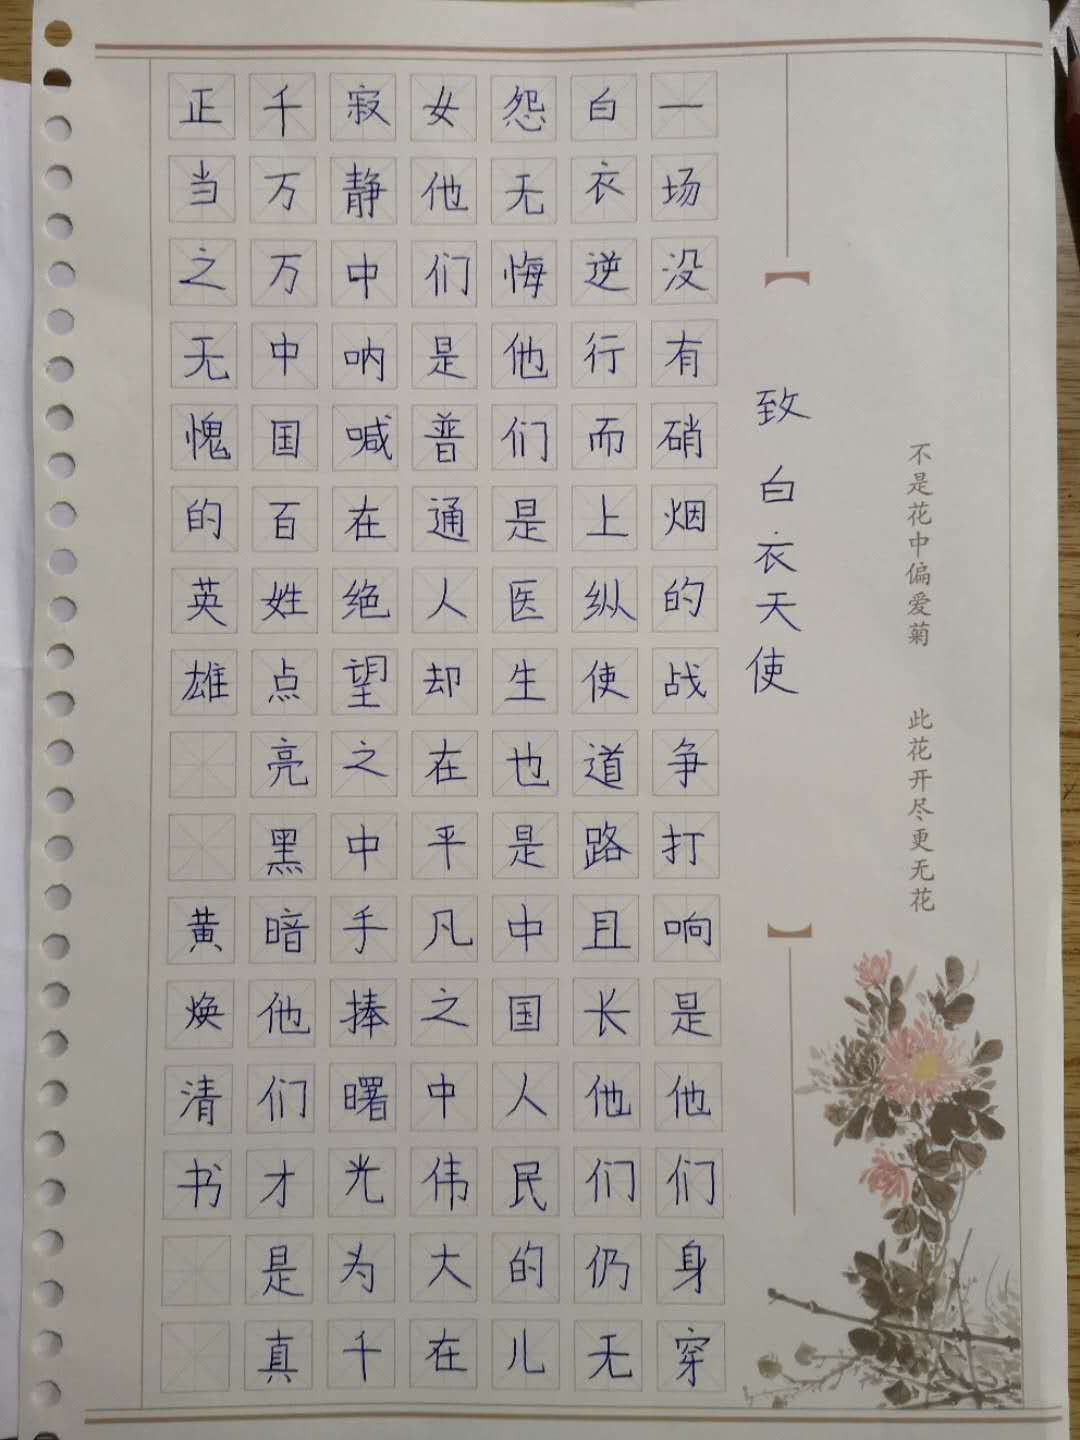 不是花中偏爱菊 此花开尽更无花
【致白衣天使】
一场没有硝烟的战争打响是他们身穿
白衣逆行而上纵使道路且长他们仍无
怨无悔他们是医生也是中国人民的儿
女他们是普通人却在平凡之中伟大在
寂静中呐喊在绝望之中手捧曙光为千
千万万中国百姓点亮黑暗他们才是真
正当之无愧的英雄 黄焕清书